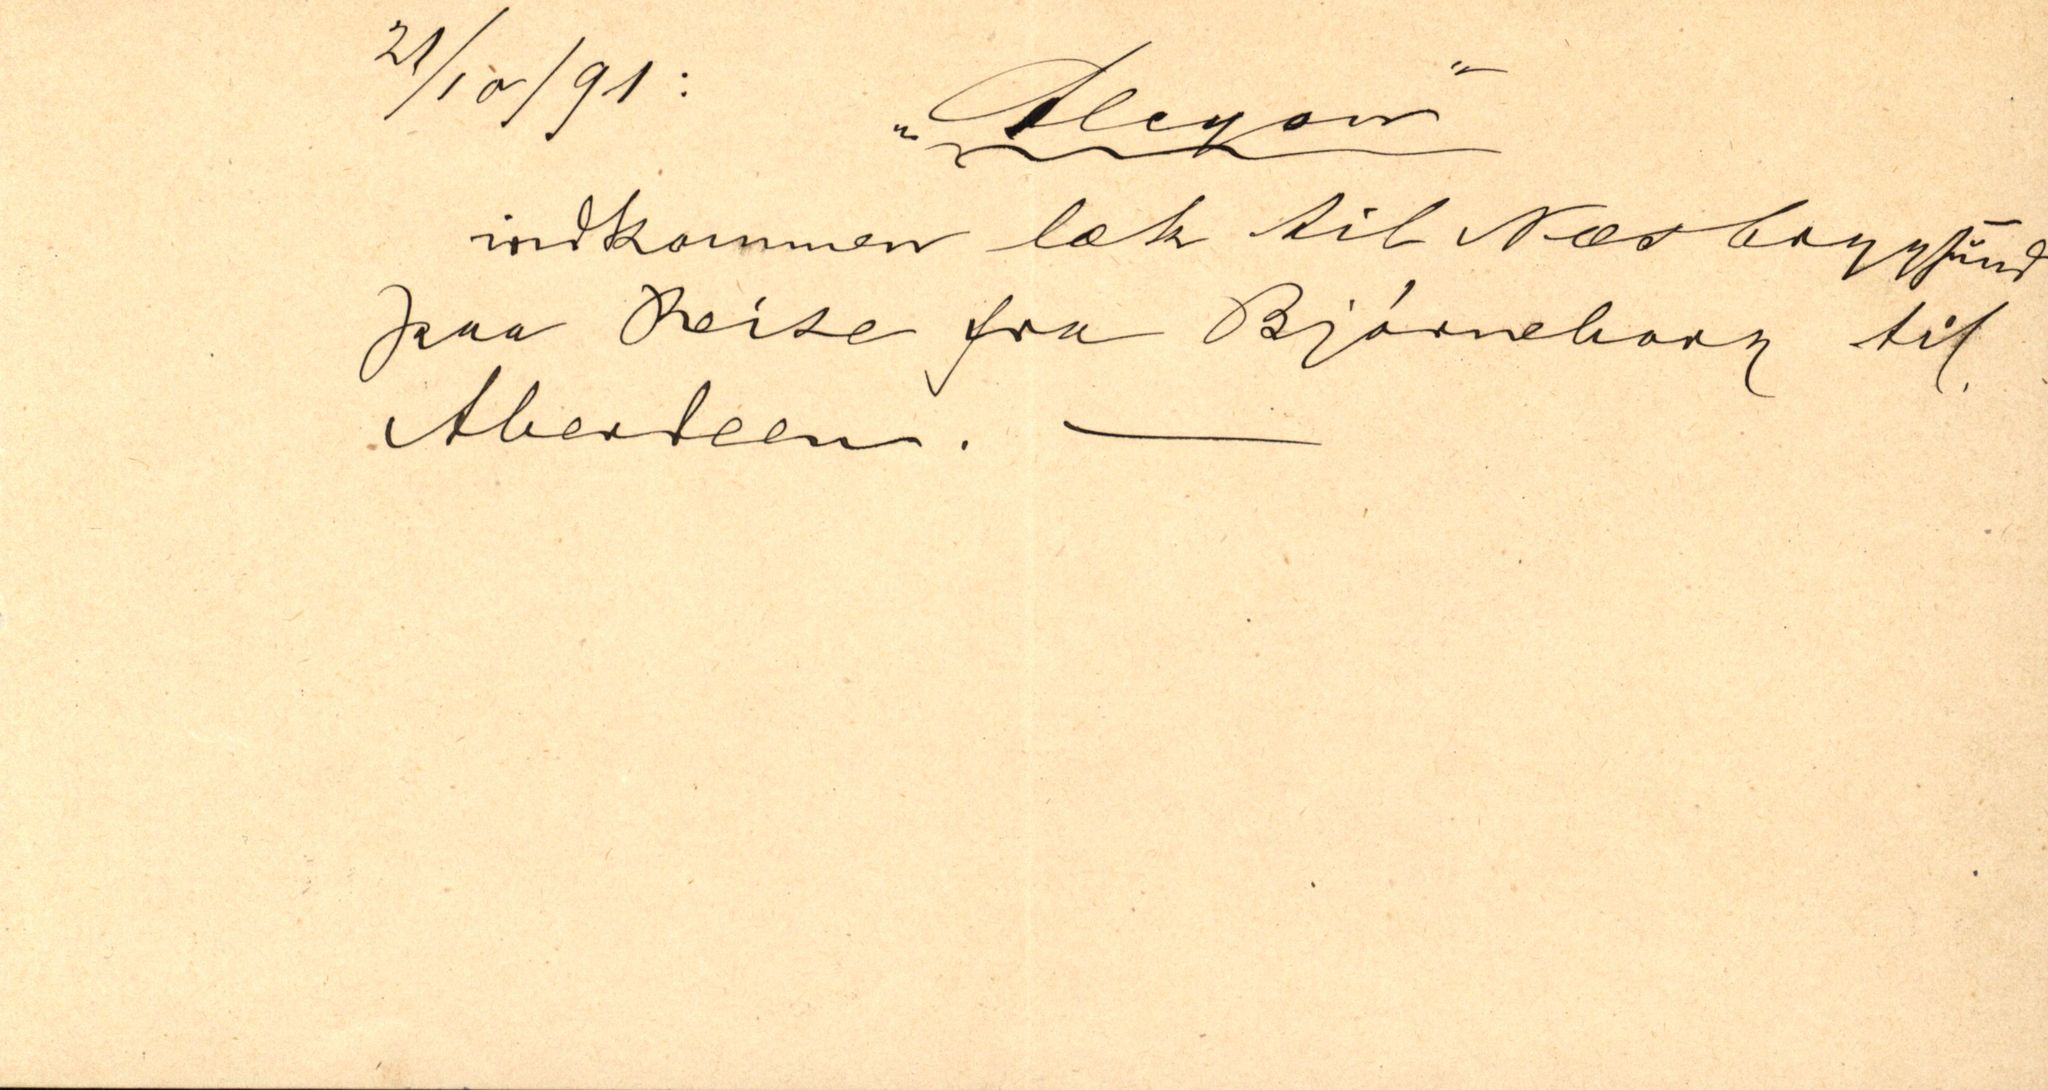 21/10/91:
"Alcyon"
indkommen læk til Næsbryggsund
paa Reise fra Bjørneborg til
Aberdeen. —